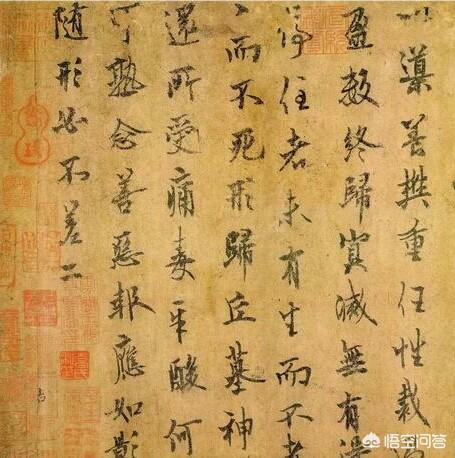 以導養樊重任性裁過
盈數終歸冥滅無有得
停住者未有生而不老
而不死形歸丘墓神
還所受痛毒辛酸何
可熟念善惡報應如影
隨形必不差二
悟空问答